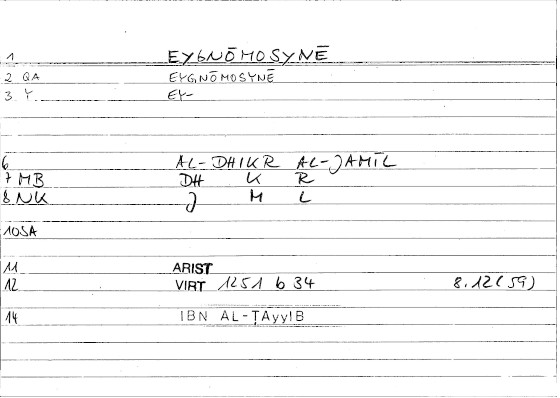 1 EYGNŌMOSYNĒ
2 QA EYGNŌMOSYNĒ
3 Y EY-
6 AL-DHIKR AL-JAMĪL
7 MB DH K R
8 NK J M L
10SA
11 ARIST
12 VIRT 1251 b 34 8.12(59)
14 IBN AL-ṬAyyIB